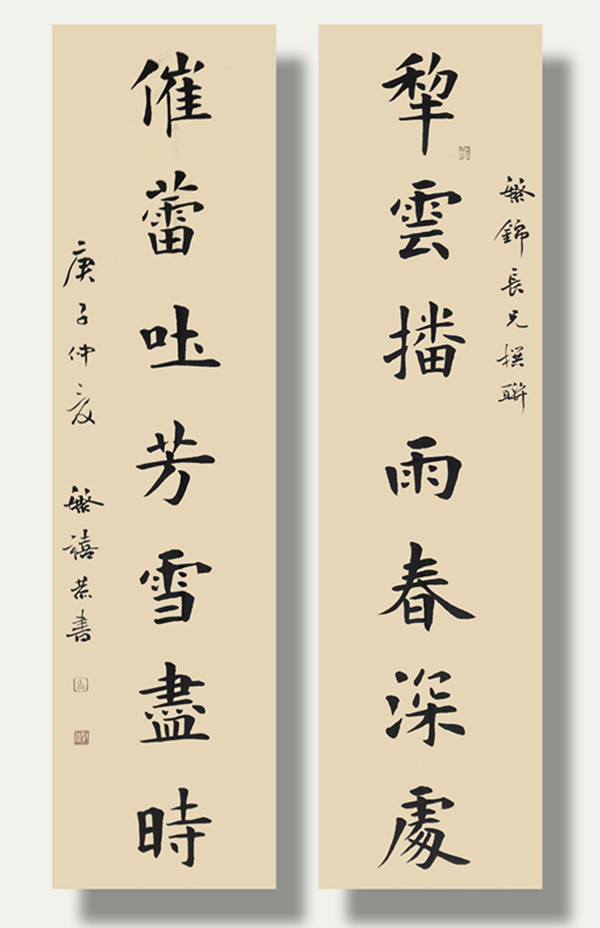 繁錦長兄撰聯
犂雲播雨春深處
催蕾吐芳雪盡時
庚子仲夏 繁禧恭書